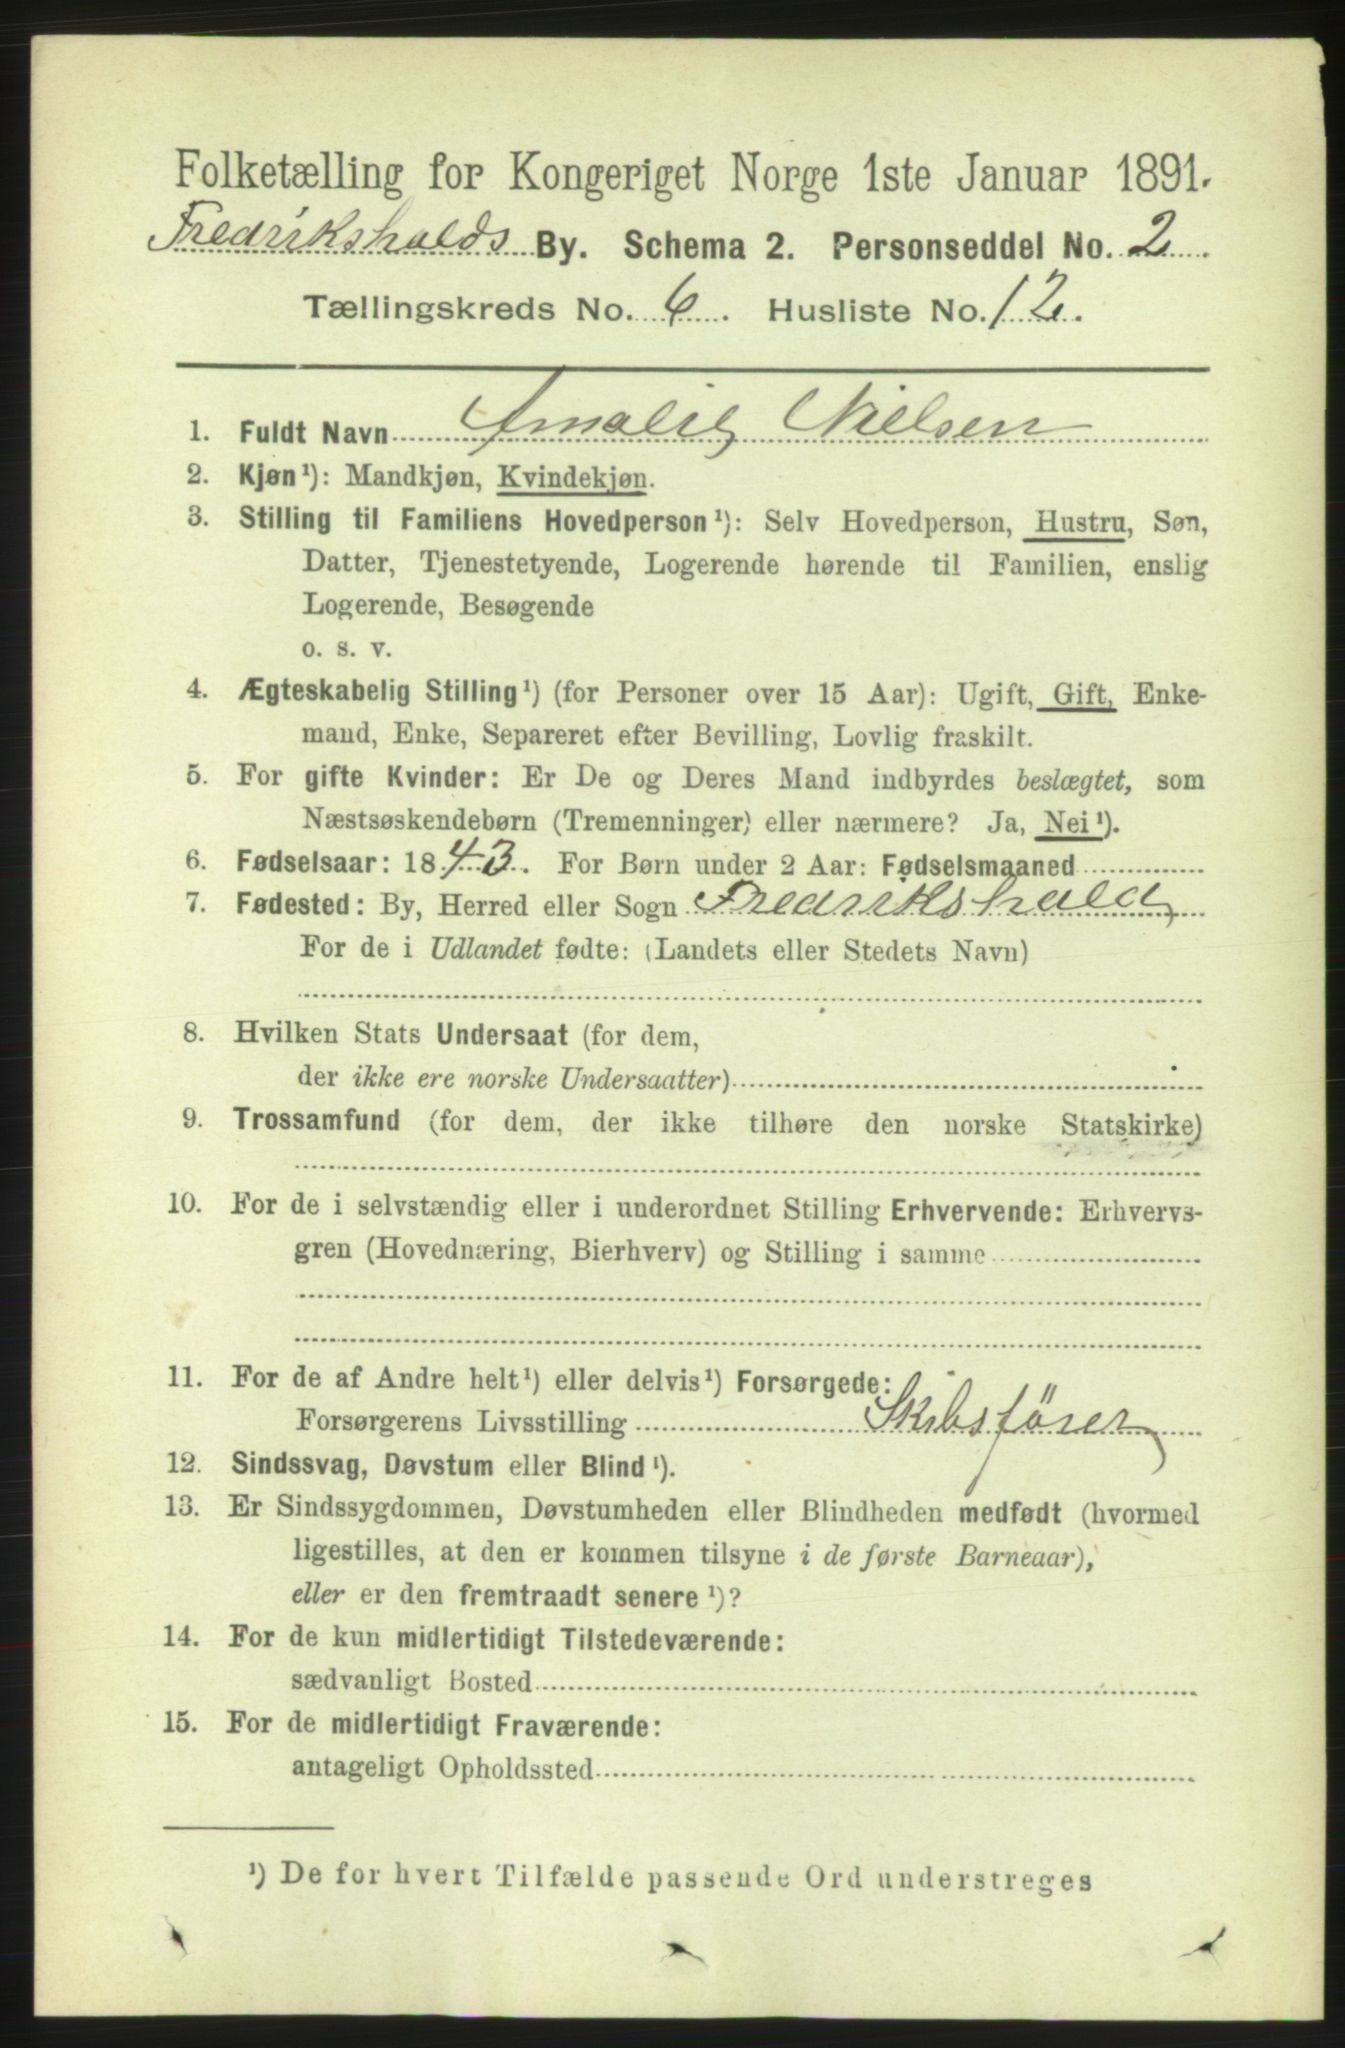 Folketælling for Kongeriget Norge 1ste Januar 1891.
Fredrikshalds By. Schema 2. Personseddel No. 2
Tællingskreds No. 6. Husliste No. 12.
1. Fuldt Navn Amalie Nielsen
2. Kjøn¹): Mandkjøn, Kvindekjøn.
3. Stilling til Familiens Hovedperson¹): Selv Hovedperson, Hustru, Søn,
Datter, Tjenestetyende, Logerende hørende til Familien, enslig
Logerende, Besøgende
o. s. v.
4. Ægteskabelig Stilling¹) (for Personer over 15 Aar): Ugift, Gift, Enke-
mand, Enke, Separeret efter Bevilling, Lovlig fraskilt.
5. For gifte Kvinder: Er De og Deres Mand indbyrdes beslægtet, som
Næstsøskendebørn (Tremenninger) eller nærmere? Ja, Nei¹).
6. Fødselsaar: 1843. For Børn under 2 Aar: Fødselsmaaned
7. Fødested: By, Herred eller Sogn Fredrikshald
For de i Udlandet fødte: (Landets eller Stedets Navn)
8. Hvilken Stats Undersaat (for dem,
der ikke ere norske Undersaatter)
9. Trossamfund (for dem, der ikke tilhøre den norske Statskirke)
10. For de i selvstændig eller i underordnet Stilling Erhvervende: Erhvervs-
gren (Hovednæring, Bierhverv) og Stilling i samme
11. For de af Andre helt¹) eller delvis¹) Forsørgede:
Forsørgerens Livsstilling Skibsfører
12. Sindssvag, Døvstum eller Blind¹).
13. Er Sindssygdommen, Døvstumheden eller Blindheden medfødt (hvormed
ligestilles, at den er kommen tilsyne i de første Barneaar),
eller er den fremtraadt senere¹)?
14. For de kun midlertidigt Tilstedeværende:
sædvanligt Bosted
15. For de midlertidigt Fraværende:
antageligt Opholdssted
¹) De for hvert Tilfælde passende Ord understreges